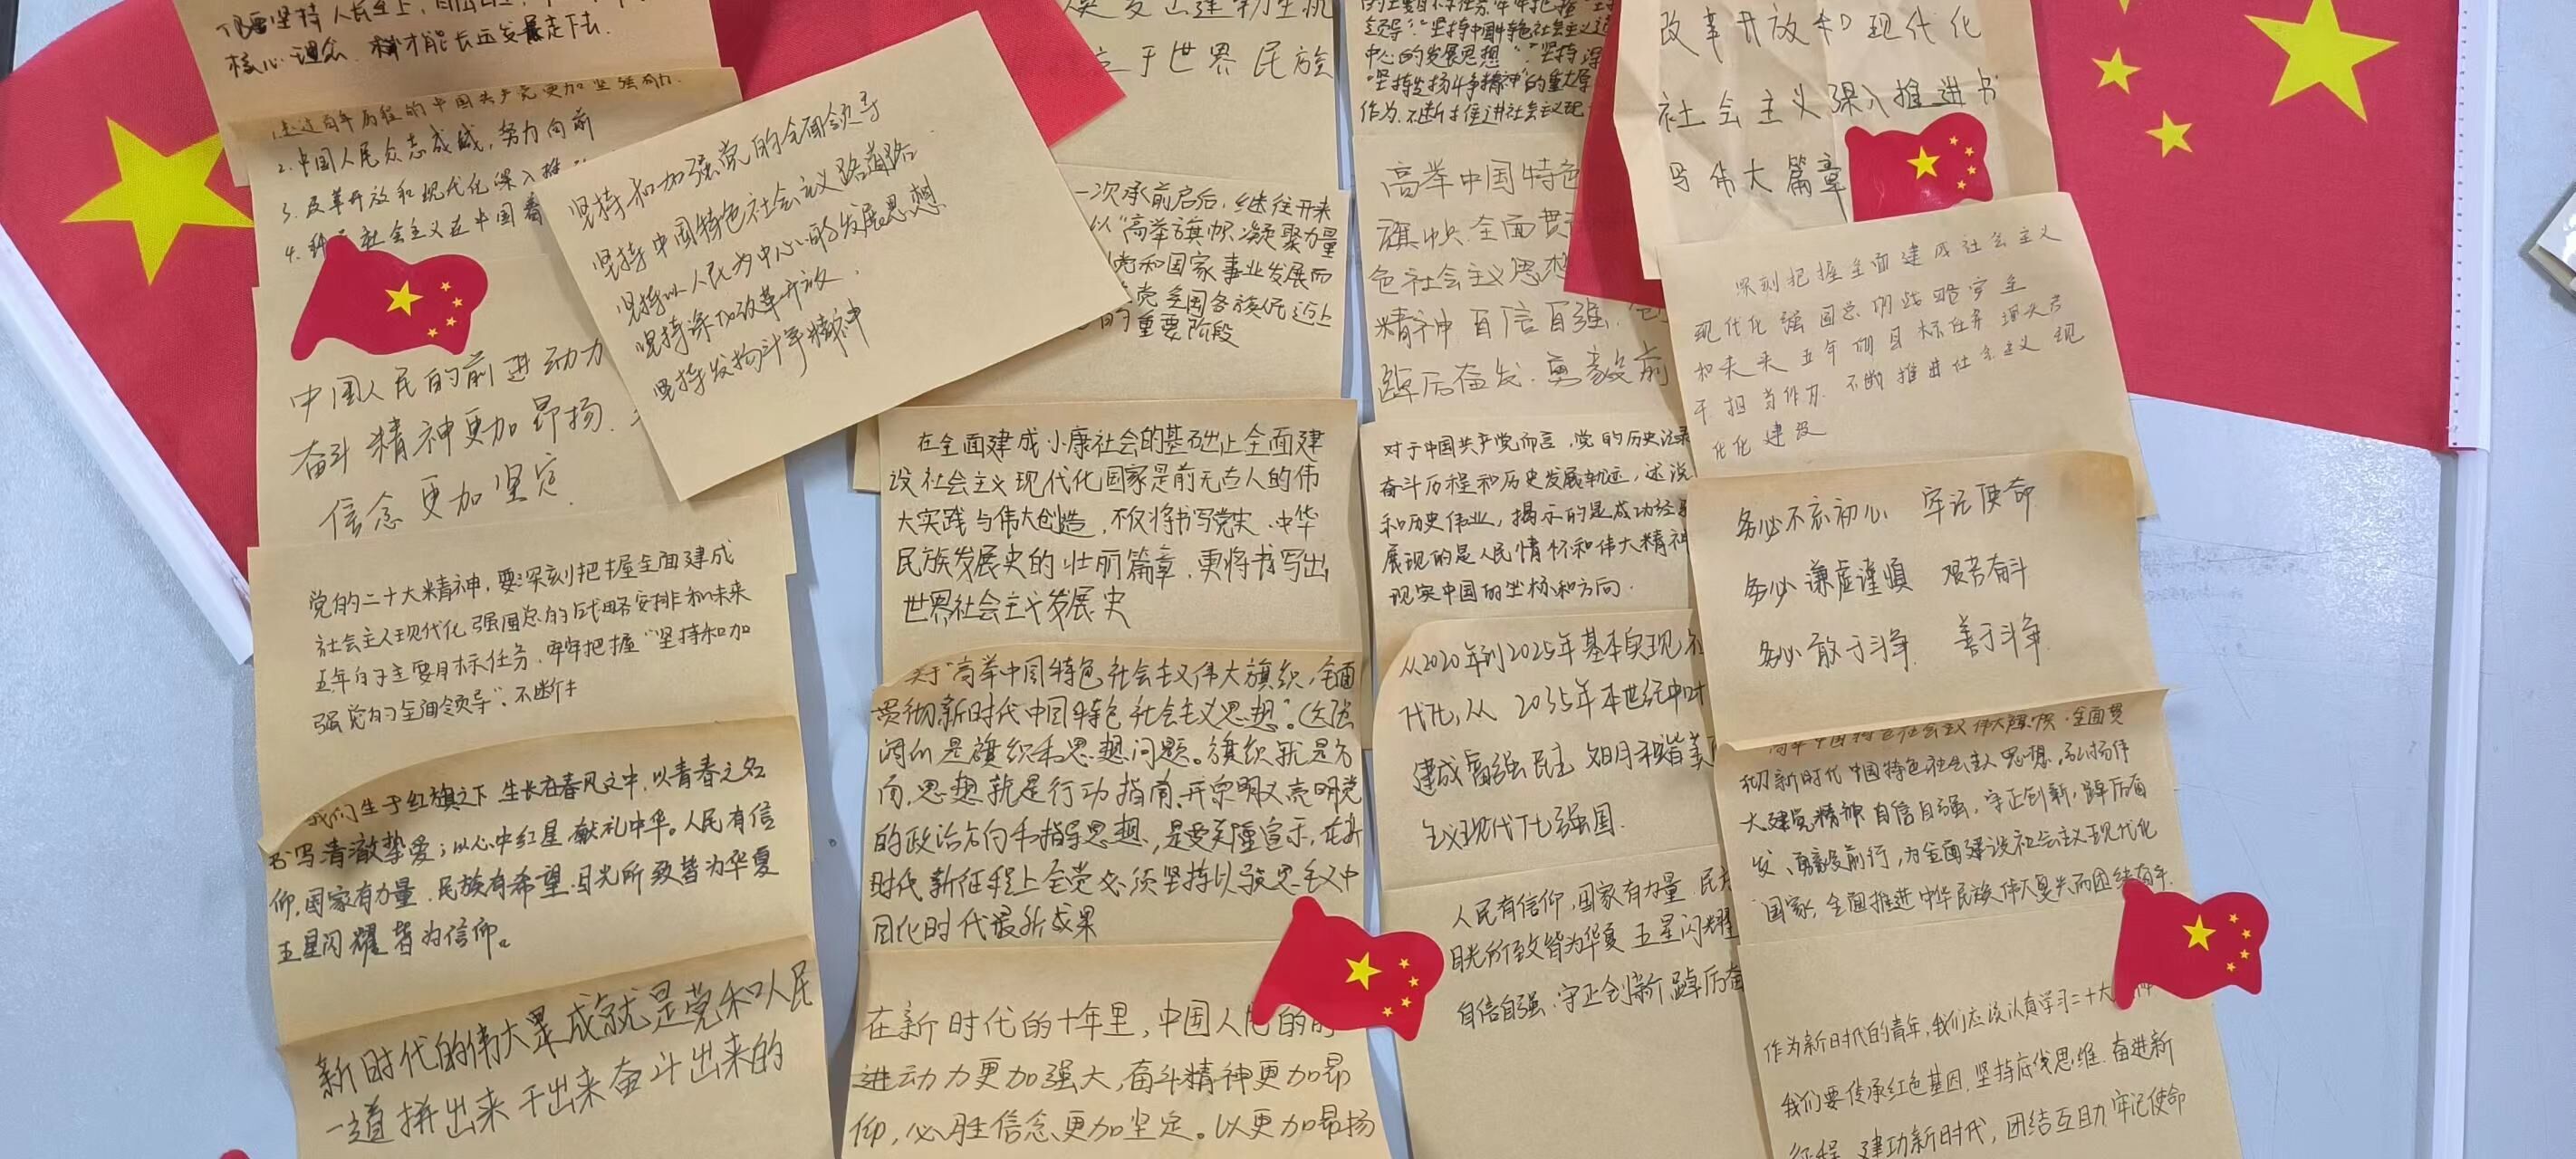 核心理念
走下去.
中国共产党更加坚强有力.
2.中国人民众志成城,努力向前
改革开放和现代化深入推
社会主义在中国
中国人民的前进动力
奋斗精神更加昂扬.
信念更加坚定.
党的二十大精神,要深刻把握全面建成
社会主义现代化强国总的战略安排和未来
五年的主要目标任务.牢牢把握“坚持和加
强党的全面领导”、不断
我们生于红旗之下 生长在春风之中,以青春之名
书写清澈挚爱;以心中红星 献礼中华。人民有信
仰,国家有力量,民族有希望.目光所致皆为华夏
五星闪耀皆为信仰。
新时代的伟大 成就是党和人民
一道拼出来 干出来 奋斗出来的
坚持和加强党的全面领导
坚持中国特色社会主义 道路
坚持以人民为中心的发展思想
坚持深 改革开放.
坚持发扬斗争精神
立于世界民族
一次承前启后,继往开来
以“高举旗帜 凝聚力量
党和国家事业发展而
党 全国各族 迈上
的重要阶段
在全面建成小康社会的基础上全面建
设社会主义现代化国家是前无古人的伟
大实践与伟大创造,不仅将书写党史、中华
民族发展史的壮丽篇章,更将书写出
世界社会主义发展史
关于“高举中国特色社会主义伟大旗 ,全面
贯彻新时代中国特色社会主义思想”。
是旗 和思想问题。旗 就是方
向,思想就是行动指南,开宗明义亮明党
的政治方向和指导思想,是 宣示,在新
时代新征程上全党必须坚持以 中
国化时代最新成果
在新时代的十年里,中国人民的前
进动力更加强大,奋斗精神更加昂
仰,必胜信念更加坚定。以更加昂扬
领导”“坚持中国特色社会主义道
中心的发展思想”“坚持深
“坚持发扬斗争精神”的重大原
作为.不断推进社会主义现
高举中国特色
旗帜.全面贯
色社会主义思想
精神 自信自强.
踔厉奋发.勇毅前
对于中国共产党而言,党的历史记录
奋斗历程和历史发展轨迹,述说
和历史伟业,揭示的是成功经验
展现的是人民情怀和伟大精神
现实中国的坐标和方向.
从2020年到2025年基本实现
代化,从 2035年本世纪中叶
建成富强民主 明和谐美
主义现代化强国.
人民有信仰,国家有力量,民
目光所致皆为华夏 五星闪耀
自信自强.守正创新 踔厉奋
改革开放和现代化
社会主义深入推进书
写伟大篇章
深刻把握全面建成社会主义
现代化强国总的战略安全
和未来五年的目标任务 埋头苦
干担当作为 不断推进社会主义现
化化建设
务必不忘初心 牢记使命
务必谦虚谨慎 艰苦奋斗
务必敢于斗争 善于斗争
高举中国特色社会主义伟大旗帜.全面贯
彻新时代中国特色社会主义思想,弘扬伟
大建党精神 自信自强,守正创新,踔厉奋
发、勇毅前行,为全面建设社会主义现代化
国家,全面推进中华民族伟大复兴而团结奋斗
作为新时代的青年,我们应该认真学习二十大 神
我们要传承红色基因.坚持底线思维.奋进新
征程 建功新时代,团结互助 牢记使命